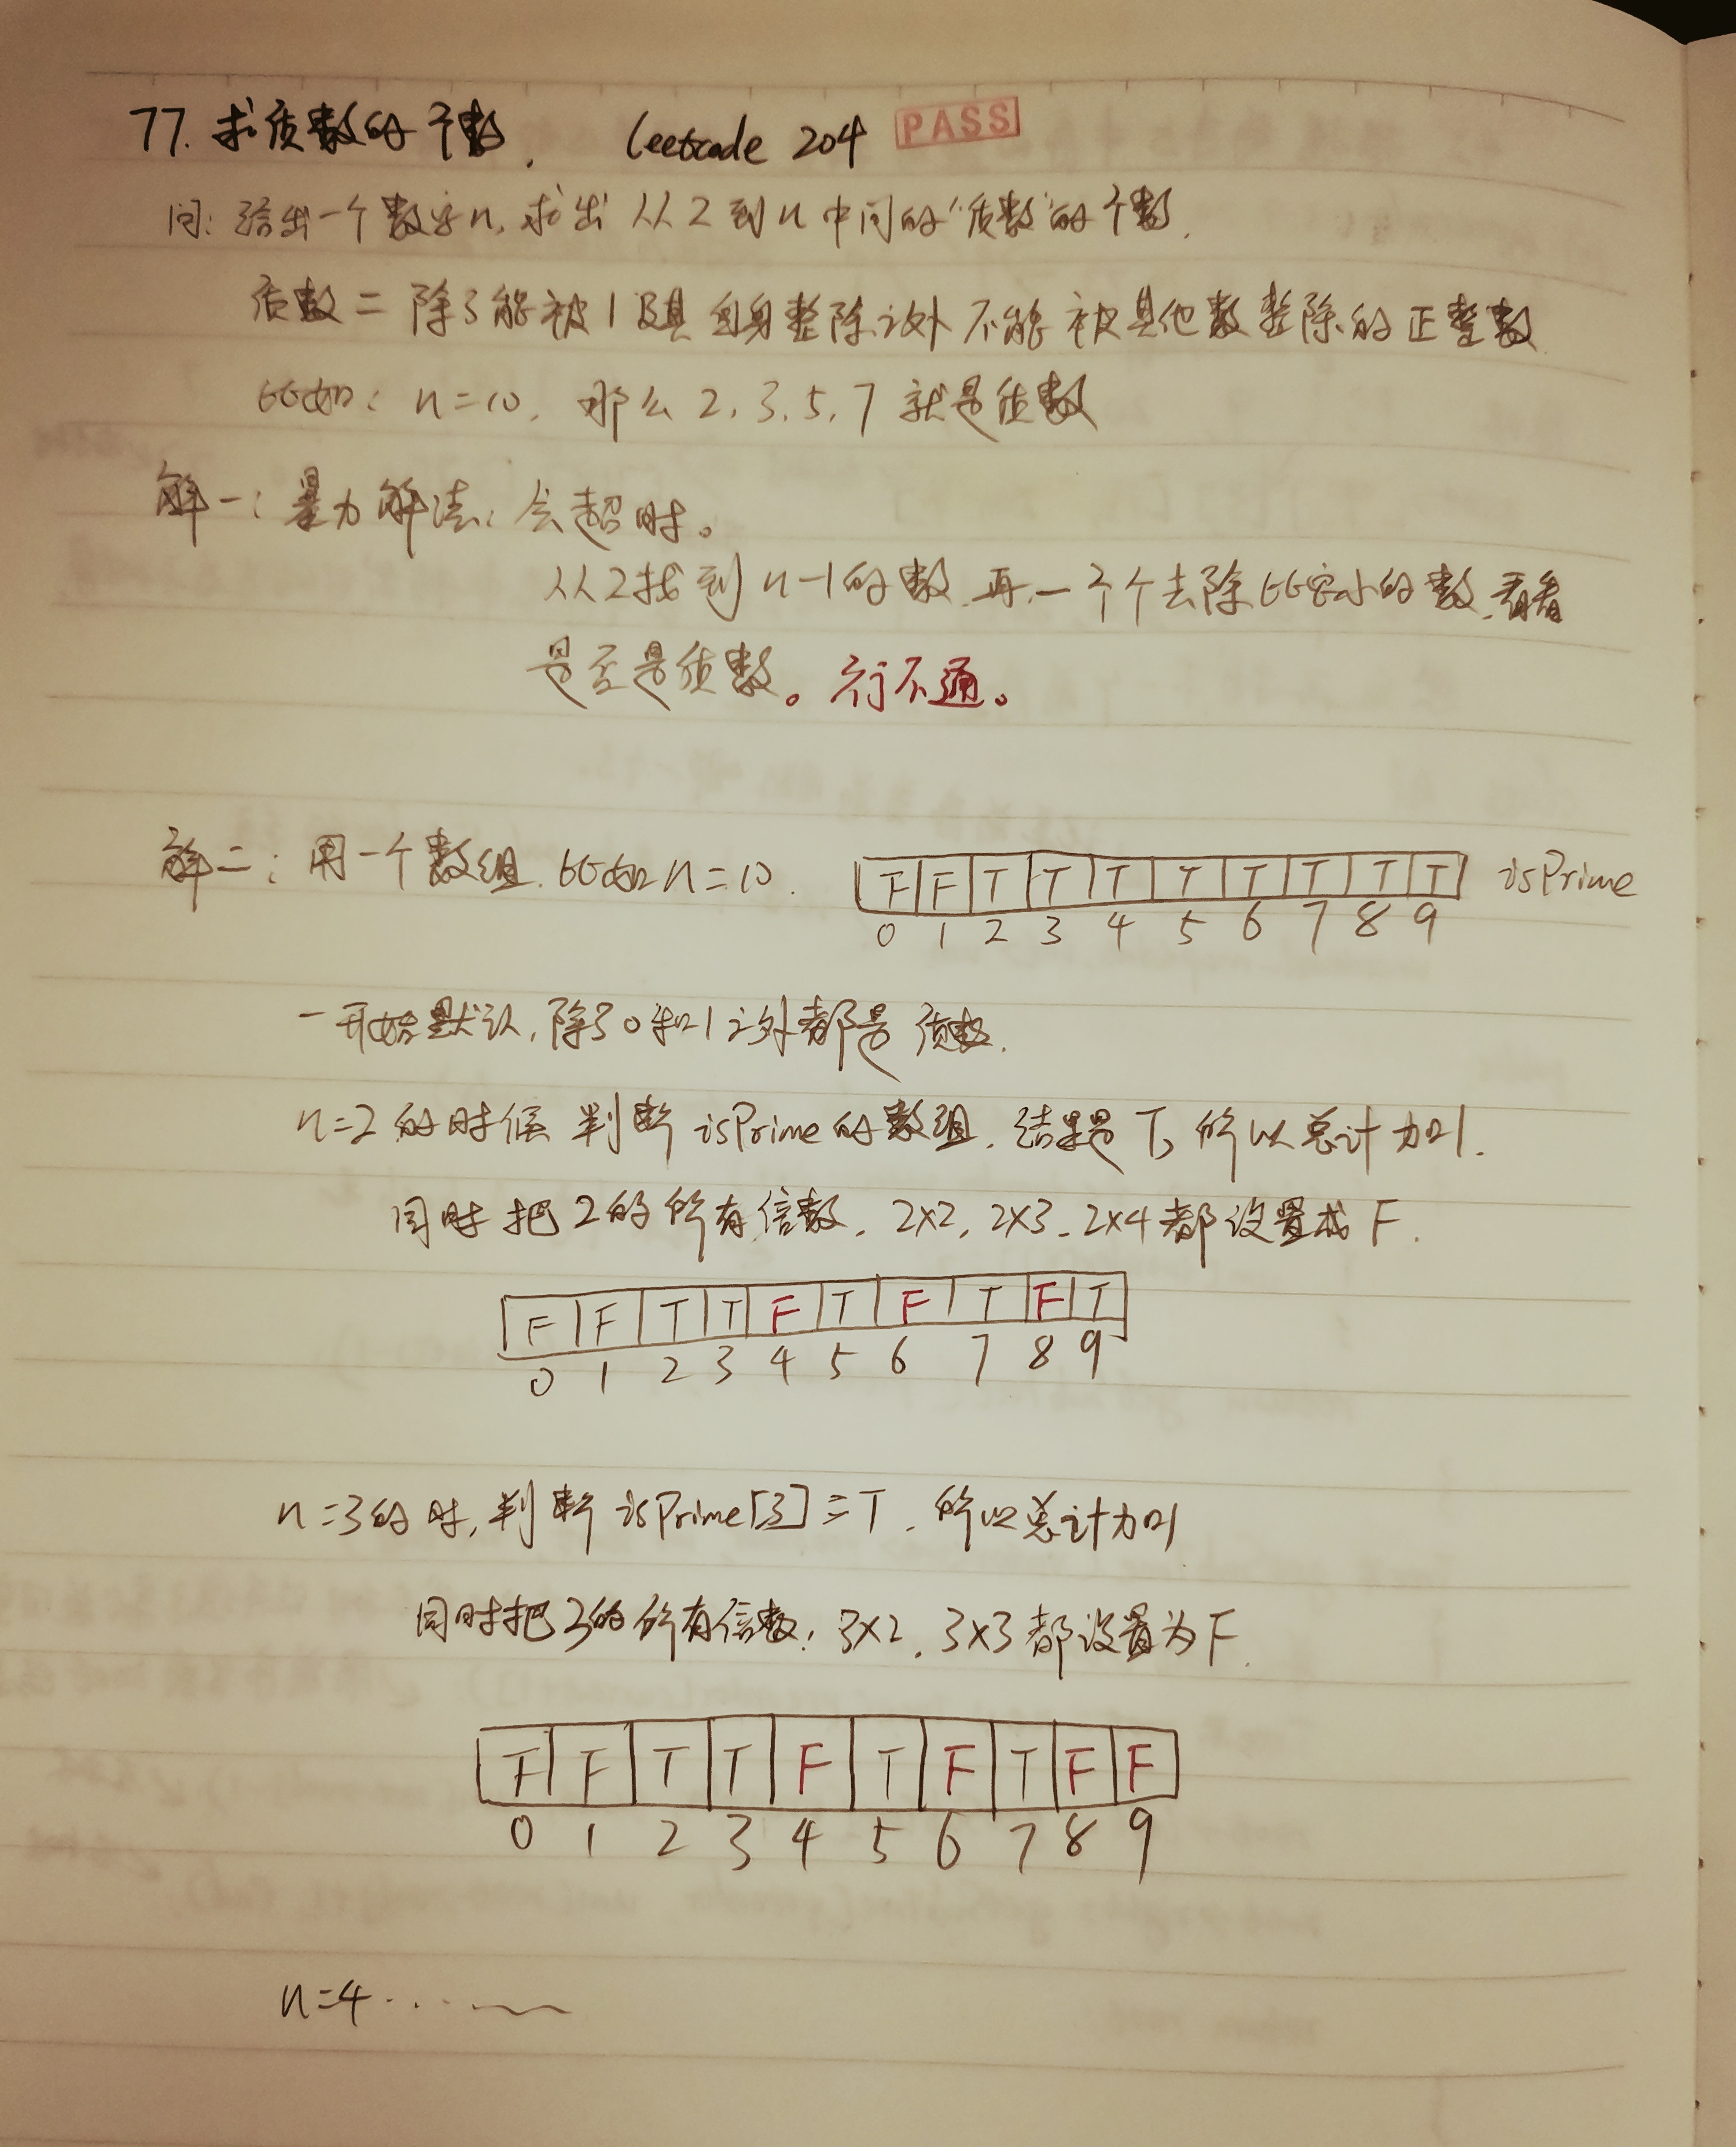 77. 求质数的个数. leetcode 204 PASS
问: 给出一个数字n, 求出从2到n中间的“质数”的个数.
质数 = 除了能被1及其自身整除之外不能被其他数整除的正整数
比如: n=10, 那么 2, 3, 5, 7 就是质数
解一: 暴力解法, 会超时。
从2找到n-1的数, 再一个个去除比它小的数, 看看
是否是质数。行不通。
解二: 用一个数组. 比如n=10. F F T T T T T T T T isPrime
0 1 2 3 4 5 6 7 8 9
一开始默认, 除了0和1之外都是质数.
n=2的时候 判断 isPrime的数组, 结果是T, 所以总计加1.
同时把2的所有倍数, 2×2, 2×3, 2×4都设置成F.
F F T T F T F T F T
0 1 2 3 4 5 6 7 8 9
n=3的时, 判断 isPrime[3]=T, 所以总计加1
同时把3的所有倍数: 3×2, 3×3都设置为F.
F F T T F T F T F F
0 1 2 3 4 5 6 7 8 9
n=4 ......